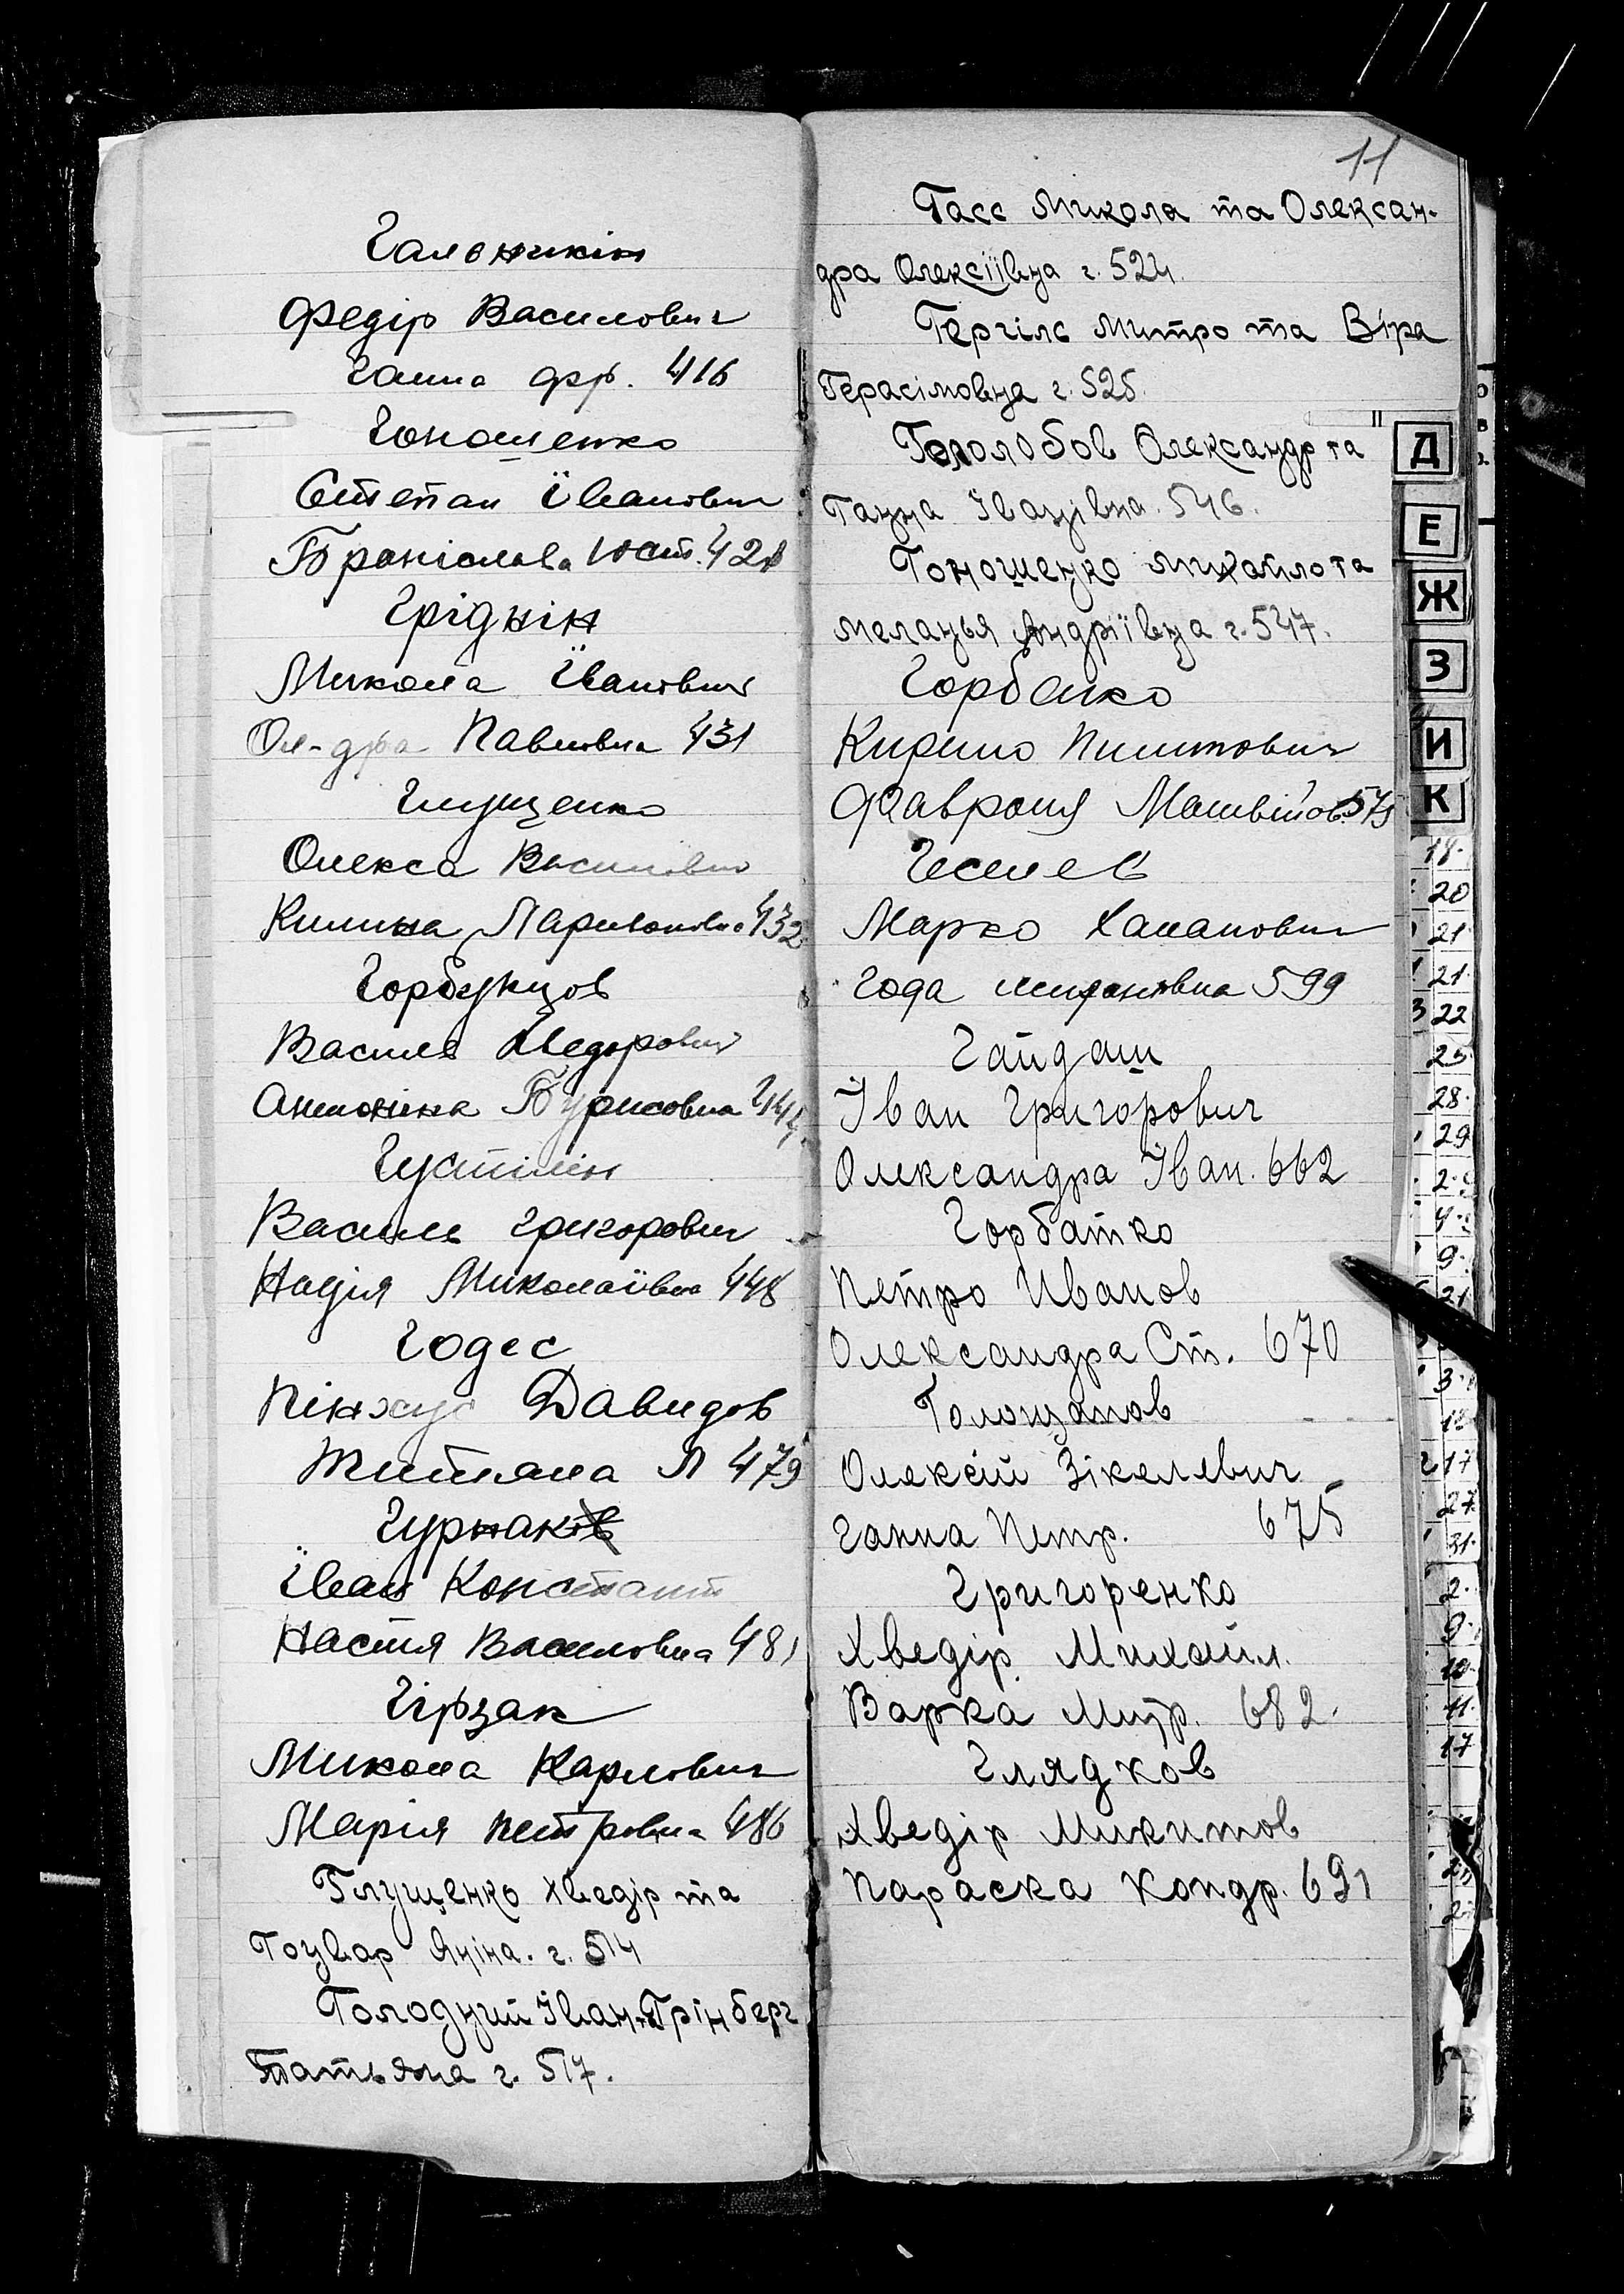 Гальонкін
Федір Василович
Ганна Фр. 416
Гоношенко
Степан Іванович
Броніслава Юст. 428
Гріднін
Микола Іванович
Ол-дра Павловна 431
Глущенко
Олекса Василович
Килина Ларионовна 432
Горбунцов
Василь Хведорович
Антоніна Борисовна 444
Густілін
Василь Григорович
Надія Миколаївна 448
Годес
Пінхус Давидов
Титяна Л 479
Гурнак
Іван Констант
Настя Василовна 481
Гірзак
Микола Карлович
Марія Петровна 486
Глущенко Хведір та
Гоувар Яніна. г. 514
Голодний Іван та Грінберг
Татьяна г. 517.
11
Гасс Микола та Олексан-
дра Олексіївна г. 524.
Гергіль Митро та Віра
Герасімовна г. 525.
Гололобов Олександр та
Ганна Іванівна. 546.
Гоношенко Михайло та
Меланья Андріївна г. 547.
Горбанко
Кирило Пилипович
Февронія Матвійов. 575
Геселев
Марко Хананович
Года 599
Гайдаш
Іван Григорович
Олександра Іван. 662
Горбатко
Петро Иванов
Олександра Ст. 670
Голощапов
Олексій Зікелевич
Ганна Петр. 675
Григоренко
Хведір Михайл.
Варка Митр. 682.
Глядков
Хведір Микитов
Параска Кондр. 691
Д
Е
Ж
З
И
К
18.
20
21
21
22
25
28.
29
9.
17
27
31.
2.
9.
10.
11.
17